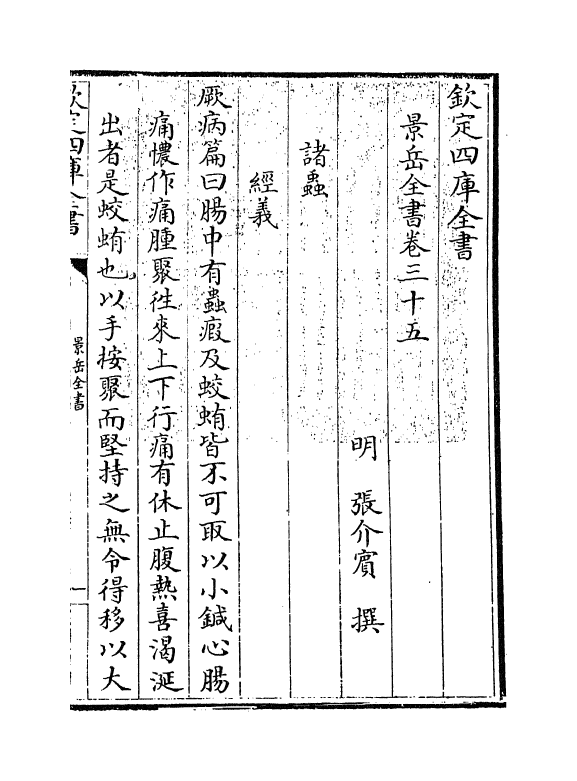 欽定四庫全書
景岳全書卷三十五
明 張介賓 撰
諸蟲
經義
厥病篇曰腸中有蟲瘕及蛟蛕皆不可取以小鍼心腸
痛憹作痛腫聚徃來上下行痛有休止腹熱喜渴涎
出者是蛟蛕也以手按聚而堅持之無令得移以大
欽定四庫全書
景岳全書
一